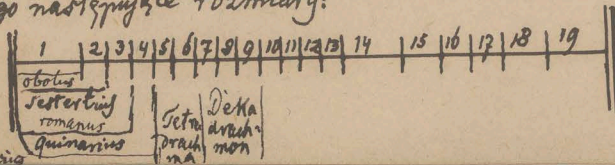 go następujące rozmiary:
1 2 3 4 5 6 7 8 9 10 11 12 13 14 15 16 17 18 19
obolus
Sestertius
romanus
quinarius
Tetra
drach
ma
Deka
drach-
mon